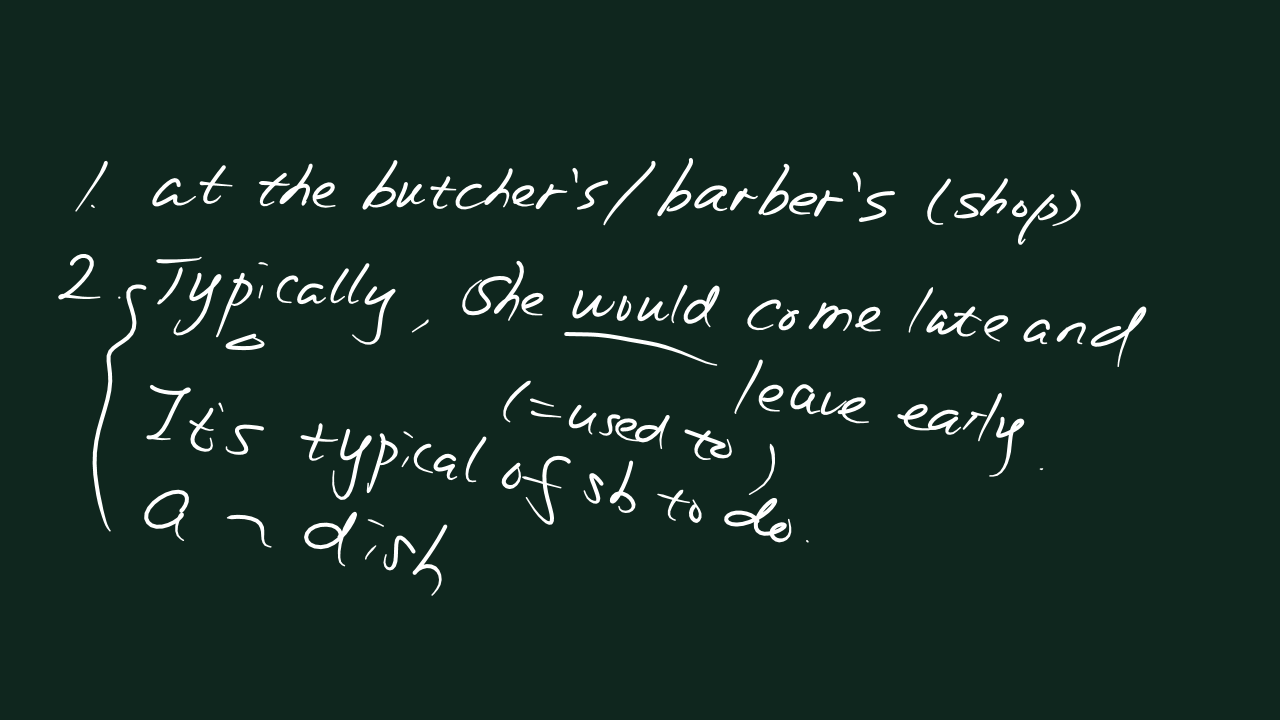 1. at the butcher's/barber's (shop)
2. Typically, She would come late and
leave early.
(=used to)
It's typical of sb to do.
a ~ dish